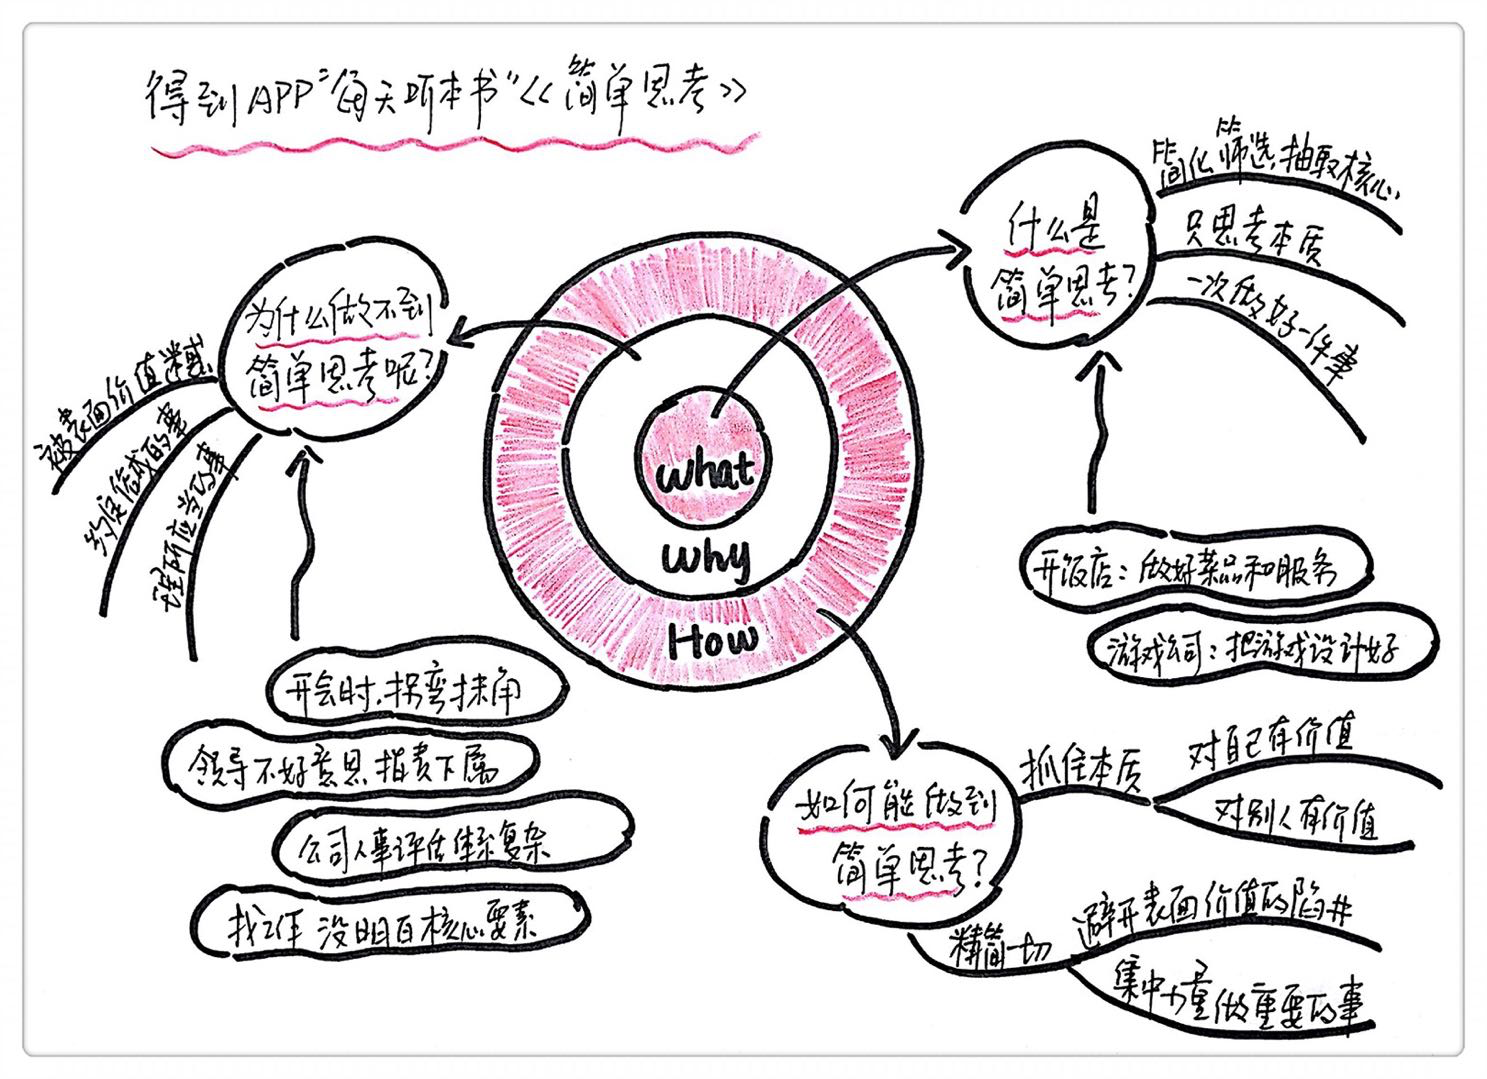 得到APP“每天听本书”《简单思考》
什么是
简单思考?
简化筛选,抽取核心
只思考本质
一次做好一件事
开饭店:做好菜品和服务
游戏公司:把游戏设计好
为什么做不到
简单思考呢?
被表面价值迷惑
约定俗成的事
理所应当的事
开会时,拐弯抹角
领导不好意思指责下属
公司人事评估体系复杂
找工作 没明白核心要素
what
why
How
如何能做到
简单思考?
抓住本质
对自己有价值
对别人有价值
精简一切
避开表面价值的陷井
集中力量做重要的事